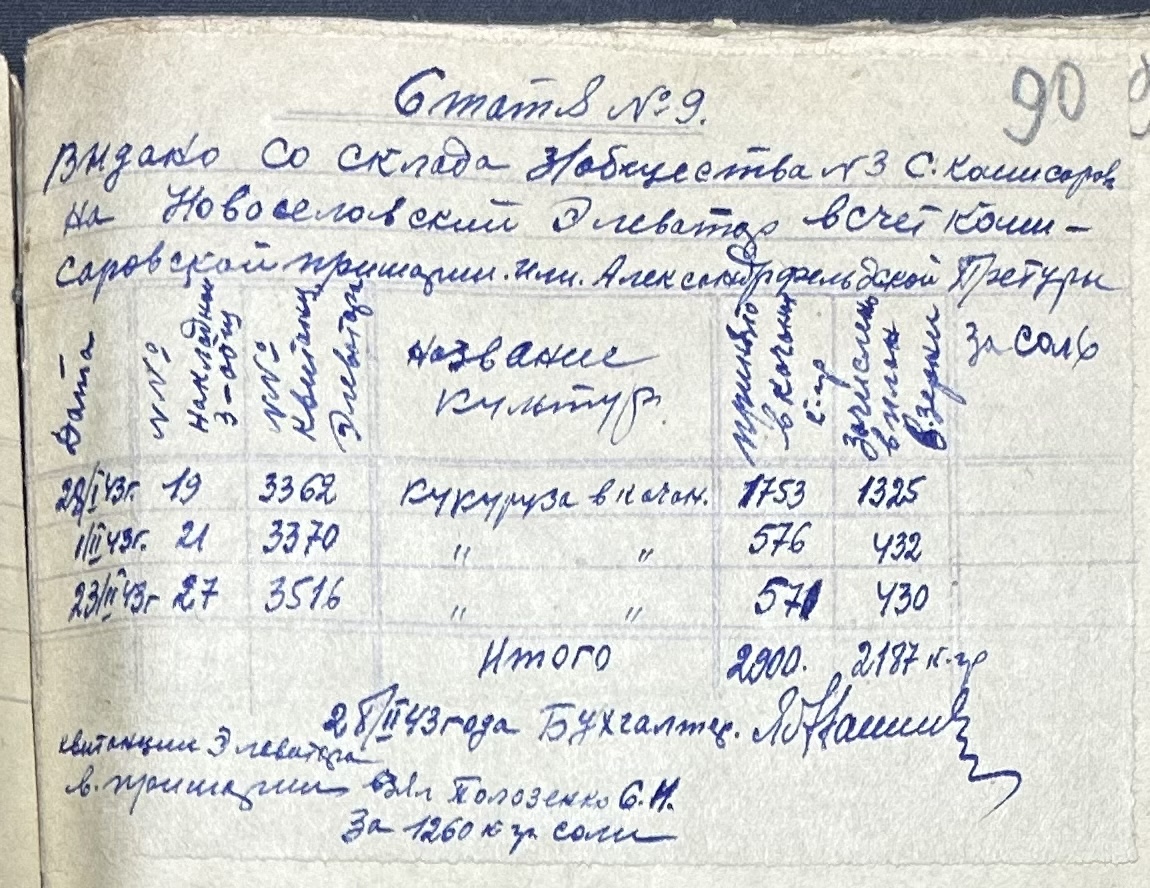 Статя № 9.
90
Видано со склада З/общества № 3 с. Комисаров
на Новоселовский Элеватор в счет Коми-
саровской примарии. или. Александрфельдской Претуры
Дата
№№ Накладных З-общ
№№ Квитанц Элеватора
Название культур
Принято в кочанах к-гр
Зачислено в зерне
За соль
28/I 43г. 19 3362 Кукуруза в кочан. 1753 1325
1/II 43г. 21 3370 " " 576 432
23/II 43г 27 3516 " " 571 430
Итого 2900. 2187 к-гр
28/II 43 года Бухгалтер.
квитанции Элеватора
в. примарии взял Полозенко С.Н.
За 1260 к-гр соли